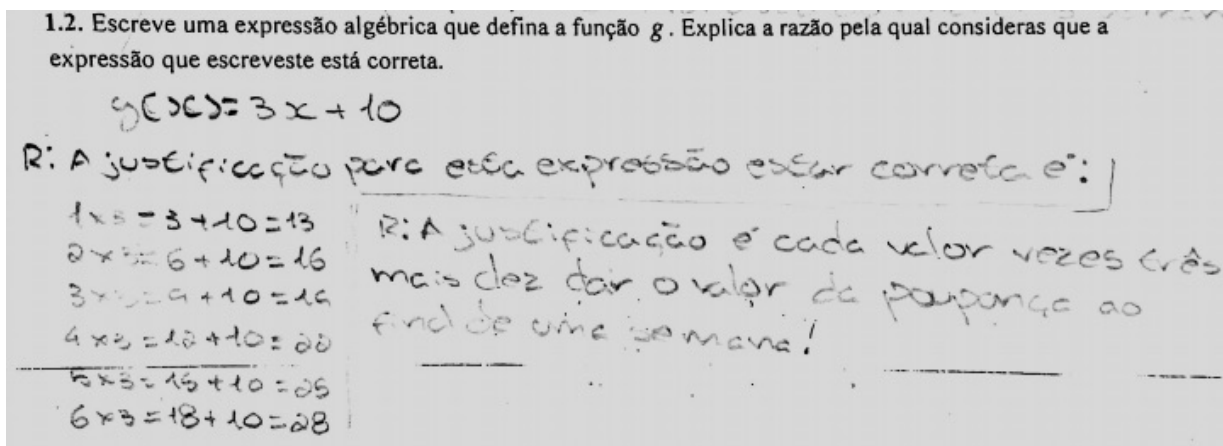 1.2. Escreve uma expressão algébrica que defina a função g. Explica a razão pela qual consideras que a
expressão que escreveste está correta.
g(x)= 3x + 10
R: A justificação para esta expressão estar correta é:
1x3 = 3+10=13
2x3= 6+10=16
3x3=9+10=19
4x3=12+10=22
5x3=15+10=25
6x3=18+10=28
R: A justificação é cada valor vezes três
mais dez dar o valor da poupança ao
final de uma semana!